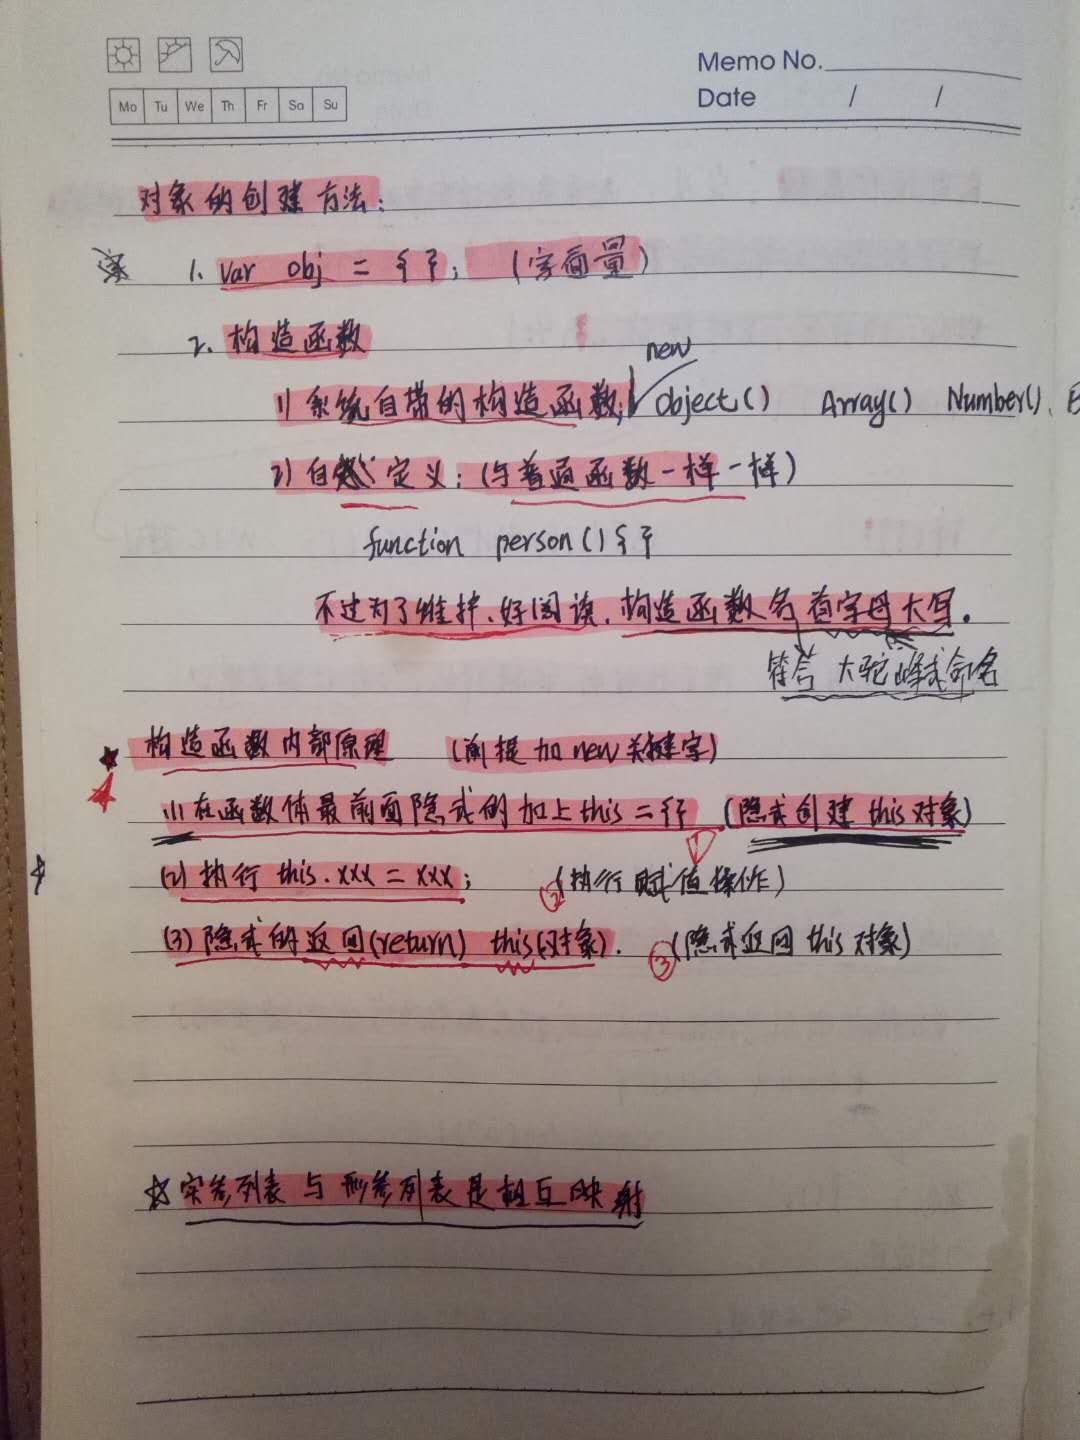 Memo No.
Mo Tu We Th Fr Sa Su
Date / /
对象的创建方法:
1. var obj = {}; (字面量)
2. 构造函数
new
1) 系统自带的构造函数; Object() Array() Number()、
2) 自定义: (与普通函数一样一样)
function person() {}
不过为了维护、好阅读、构造函数名首字母大写.
符合 大驼峰式命名
构造函数内部原理 (前提加new关键字)
(1) 在函数体最前面隐式的加上this = {} (隐式创建 this对象)
1
(2) 执行 this.xxx = xxx; ② (执行赋值操作)
(3) 隐式的返回(return) this(对象). ③ (隐式返回 this 对象)
☆ 实参列表 与 形参列表是相互映射